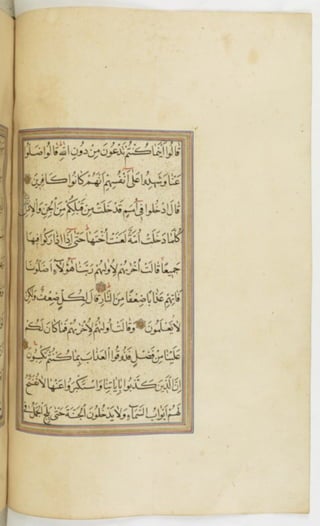 قالوا اينما كنتم تدعون من دون الله قالوا ضلوا
عنا وشهدوا على انفسهم انهم كانوا كافرين
قال ادخلوا في امم قد خلت من قبلكم من الجن والانس
كلما دخلت امة لعنت اختها حتى اذا اداركوا فيها
جميعا قالت اخريهم لاوليهم ربنا هؤلاء اضلونا
فاتهم عذابا ضعفا من النار قال لكل ضعف ولكن
لا تعلمون وقالت اوليهم لاخريهم فما كان لكم
علينا من فضل فذوقوا العذاب بما كنتم تكسبون
ان الذين كذبوا باياتنا واستكبروا عنها لا تفتح
لهم ابواب السماء ولا يدخلون الجنة حتى يلج الجمل في